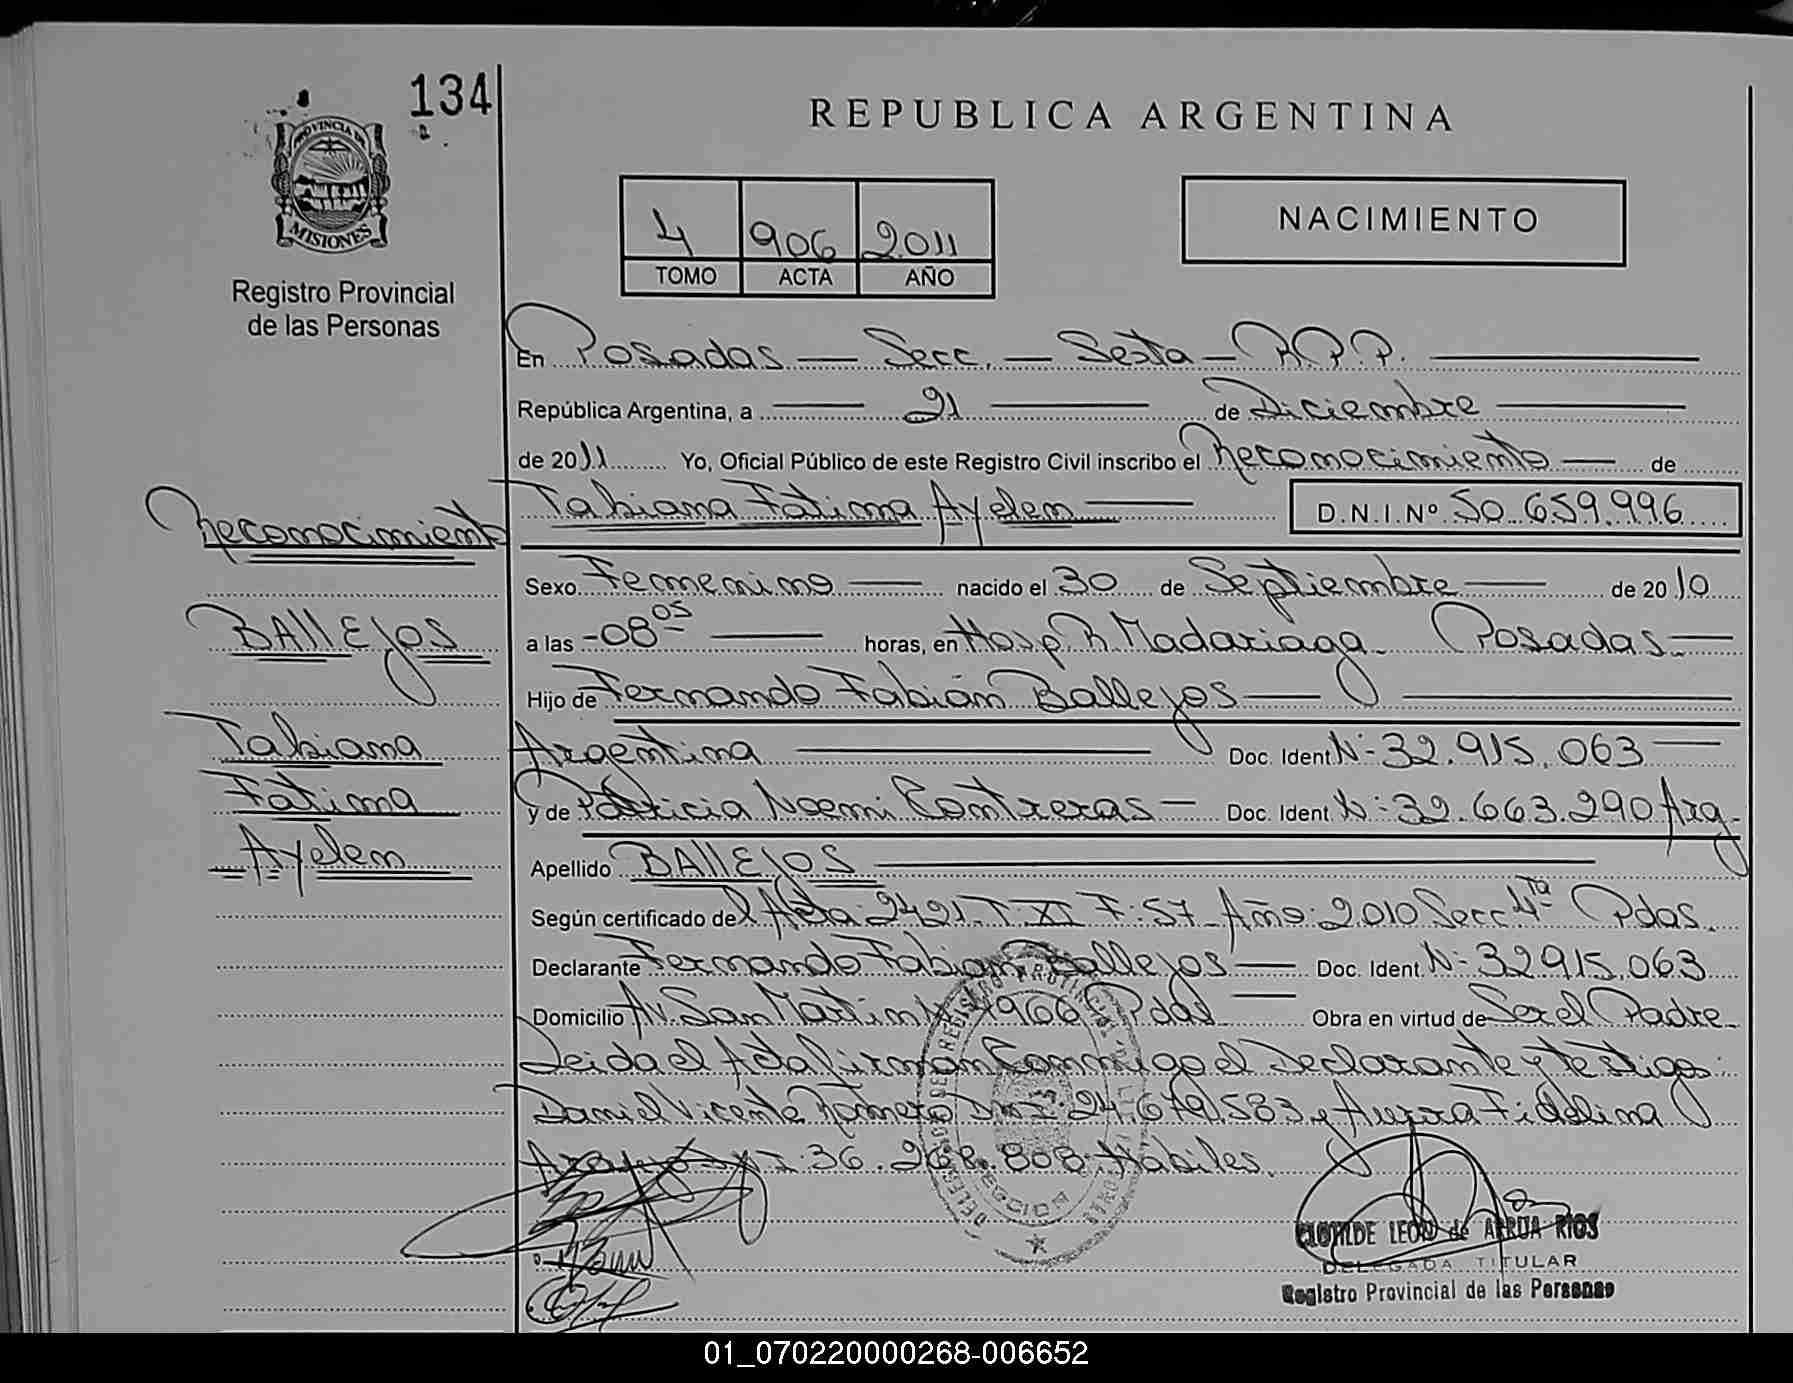 134
REPUBLICA ARGENTINA
PROVINCIA DE
MISIONES
Registro Provincial
de las Personas
4 906 2011
TOMO ACTA AÑO
NACIMIENTO
En Posadas — Secc. — Sexta — R.P.P.
República Argentina, a — 21 — de Diciembre
de 2011 Yo, Oficial Público de este Registro Civil inscribo el Reconocimiento — de
Tabiana Fatima Ayelen — D.N.I.Nº 50.659.996
Sexo Femenino — nacido el 30 de Septiembre — de 2010
a las -08 05 — horas, en Hosp. R. Madariaga. Posadas —
Hijo de Fernando Fabián Ballejos —
Argentina — Doc. Ident. Nº 32.915.063 —
y de Patricia Noemi Contreras — Doc. Ident. Nº 32.663.290 Arg.
Apellido BAllEjoS —
Según certificado del Acta: 2421. T: XI F: 57 Año: 2010 Secc 4ta Pdas.
Declarante Fernando Fabian Ballejos — Doc. Ident. Nº 32915.063
Domicilio Av. San Martin Nº 1966 Pdas — Obra en virtud de Ser el Padre
Leida el Acta firman Conmigo el Declarante y testigos:
Daniel Vicente Romero D.N.I: 24.679.583 y Aurora Fidelina
36.268.808 Habiles.
Reconocimiento
BAllEjoS
Tabiana
Fatima
Ayelen
CLOTILDE LEON de ARRUA RIOS
DELEGADA TITULAR
Registro Provincial de las Personas
01_070220000268-006652